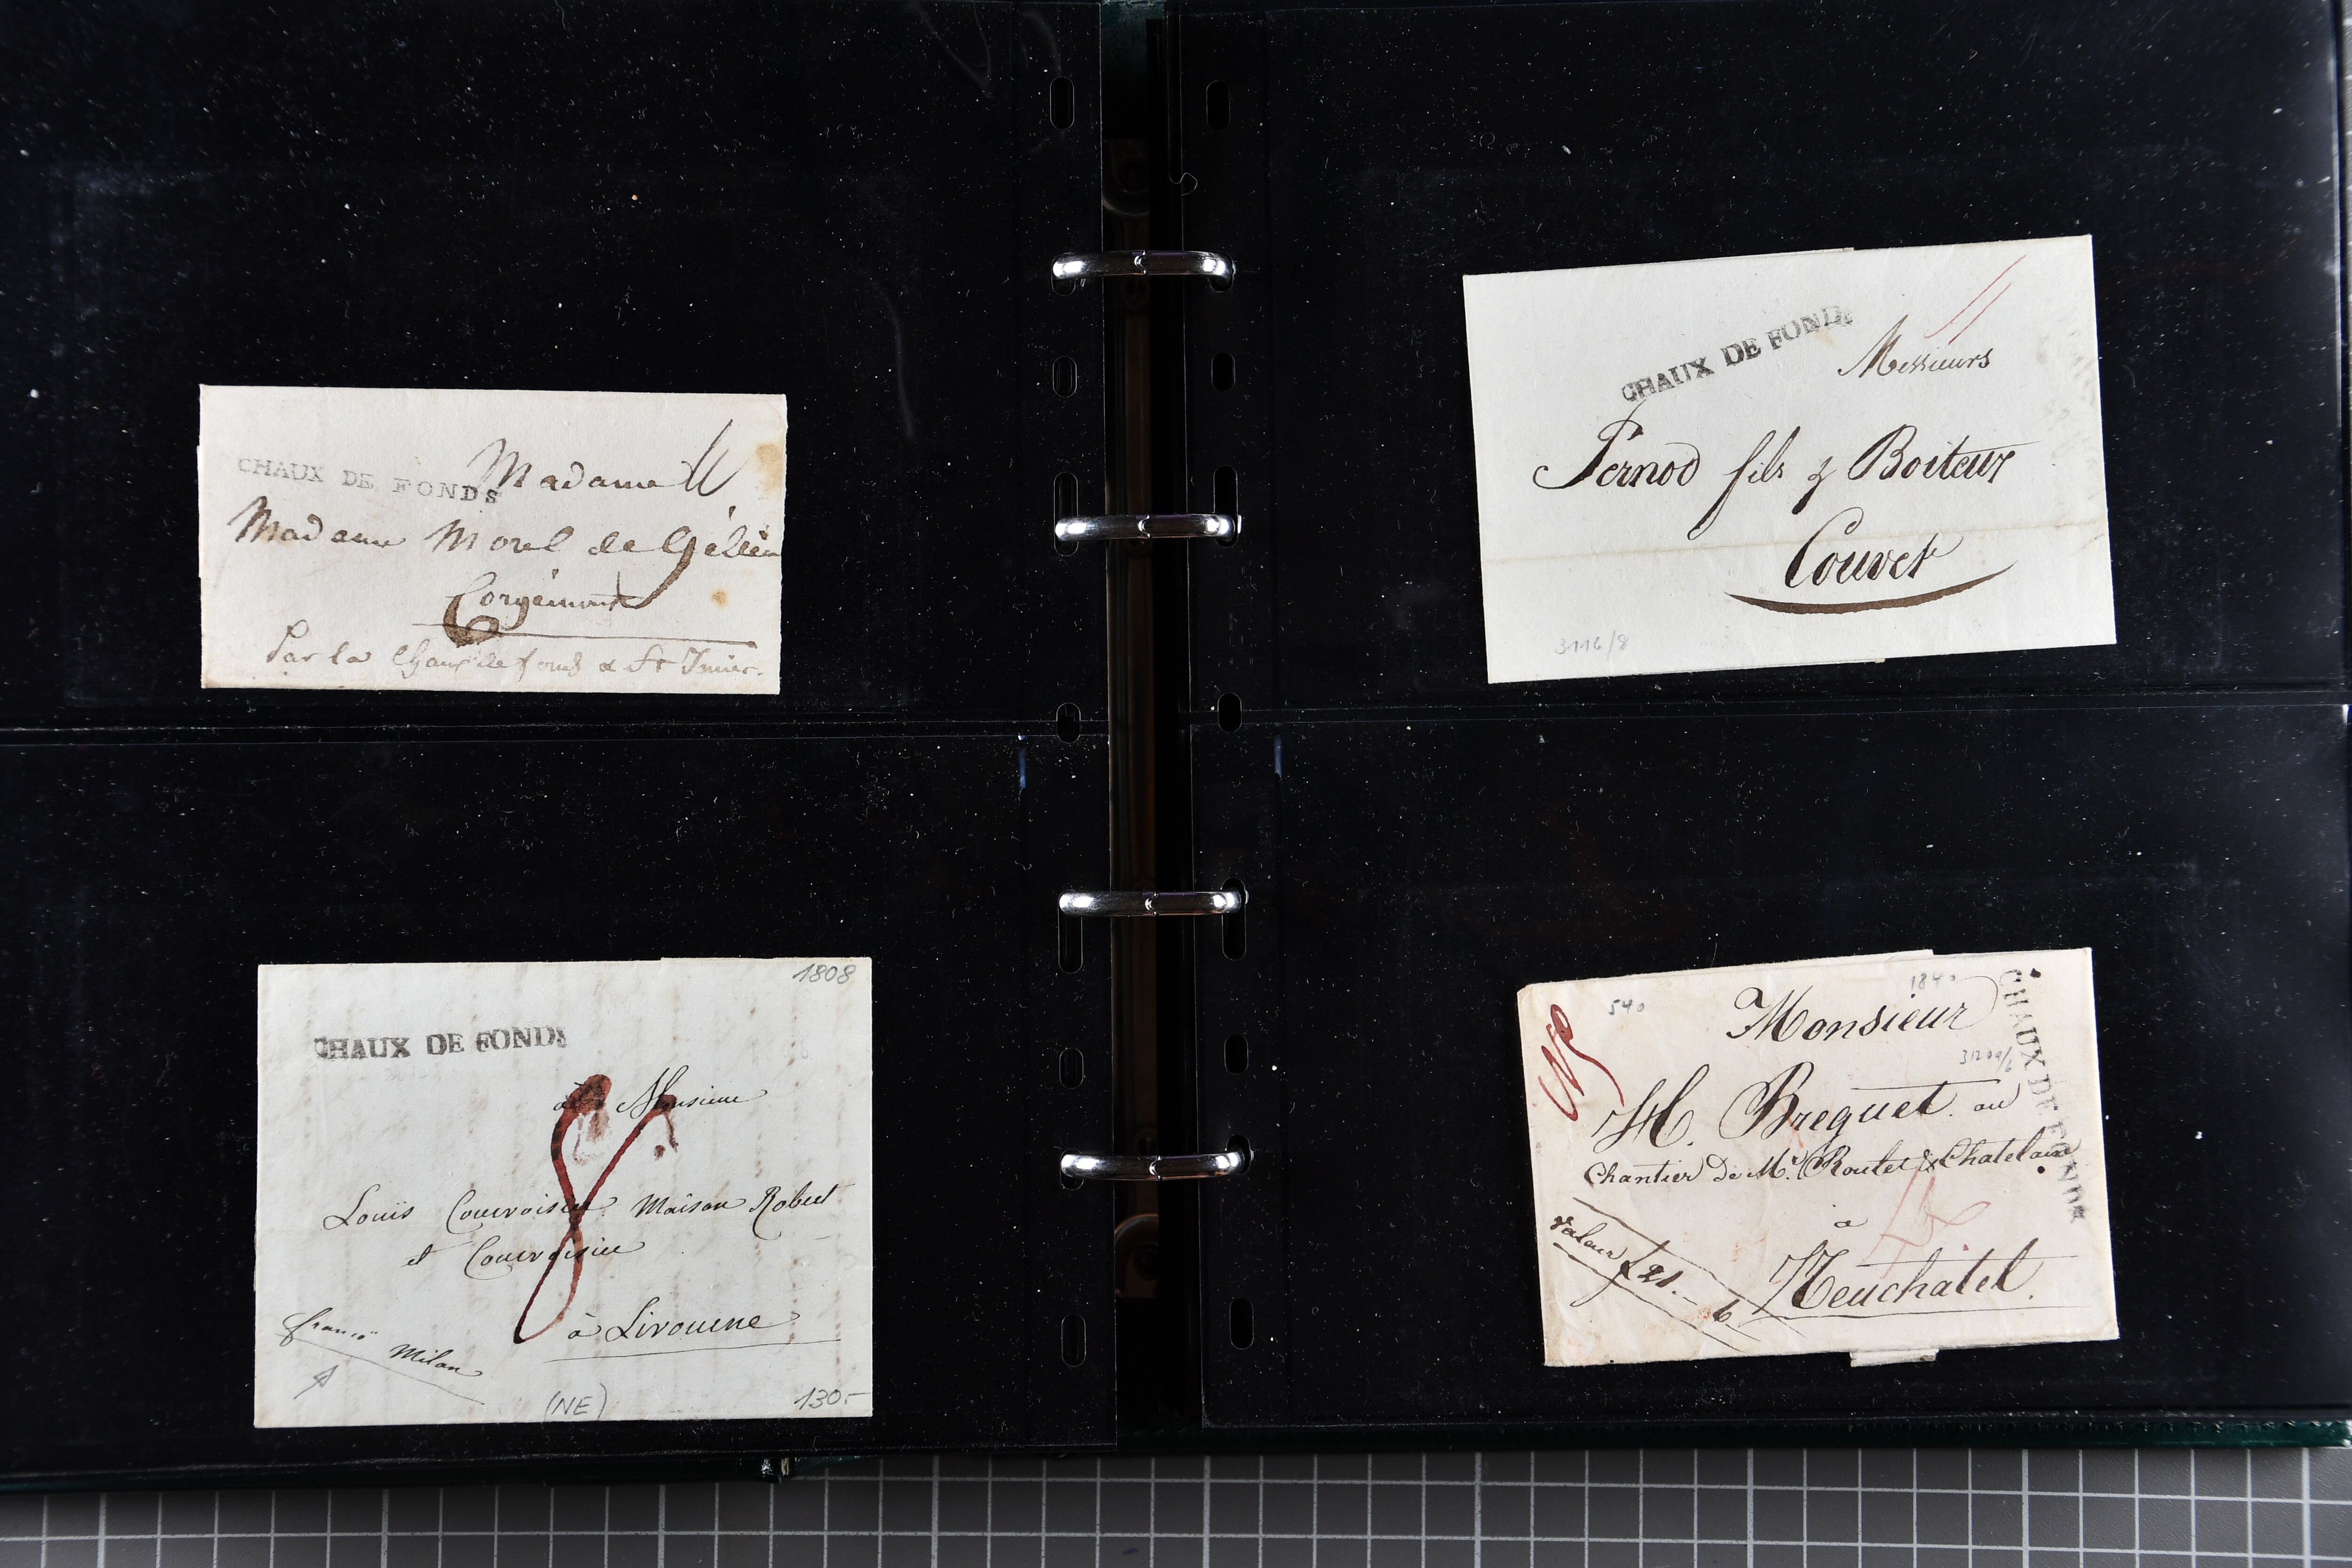 CHAUX DE FONDS
Madame
Madame Morel de Gélieu
Corgémont
Par la Chaux de fonds & St Imier.
1808
CHAUX DE FONDS
à Monsieur
8
Louis Courvoisier Maison Robert
et Courvoisier
à Livourne
franco Milan
(NE)
130.-
CHAUX DE FONDS
Messieurs
Pernod fils & Boiteux
Couvet
3116/8
540
1840
CHAUX DE FONDS
Monsieur
H. Breguet au
Chantier de Mr. Roulet & Chatelain
à
Neuchatel.
Valeur £ 21.- 6